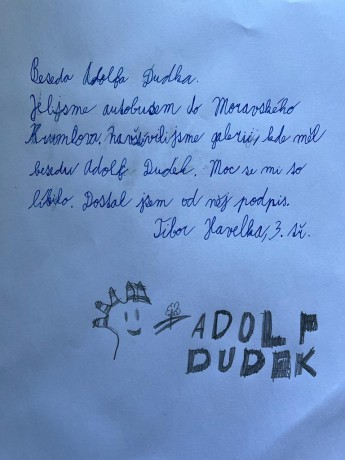 Beseda Adolfa Dudka.
Jeli jsme autobusem do Moravského
Krumlova. Navštívili jsme galerii, kde měl
besedu Adolf Dudek. Moc se mi to
líbilo. Dostal jsem od něj podpis.
Tibor Havelka, 3. tř.
ADOLF
DUDEK